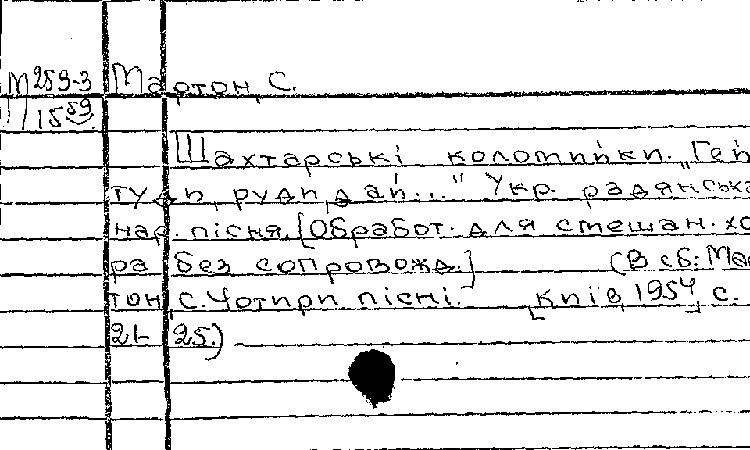 М 259-3 Мартон, С.
1559
Шахтарські коломийки. „Гей
туди, руди, дай..." Укр. радянська
нар. пісня. [Обработ. для смешан. хо
ра без сопровожд.] (В сб: Мар
тон С. Чотири пісні. [Київ, 1954] с.
21-25.)